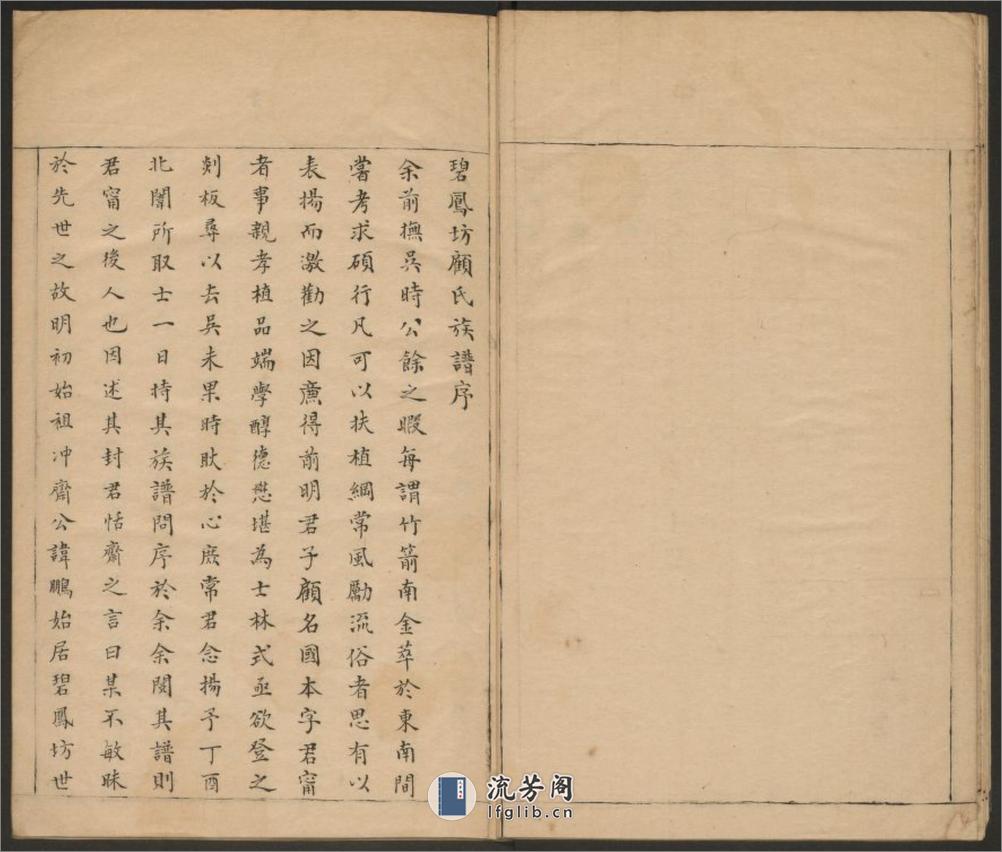 碧鳳坊顧氏族譜序
余前撫吳時公餘之暇每謂竹箭南金萃於東南間
嘗考求碩行凡可以扶植綱常風勵流俗者思有以
表揚而激勸之因廉得前明君子顧名國本字君甯
者事親孝植品端學醇德懋堪為士林式亟欲登之
剡板尋以去吳未果時耿於心庶常君念揚予丁酉
北闈所取士一日持其族譜問序於余余閱其譜則
君甯之後人也因述其封君恬齋之言曰某不敏昧
於先世之故明初始祖冲齋公諱鵬始居碧鳳坊世
流芳阁
lfglib.cn